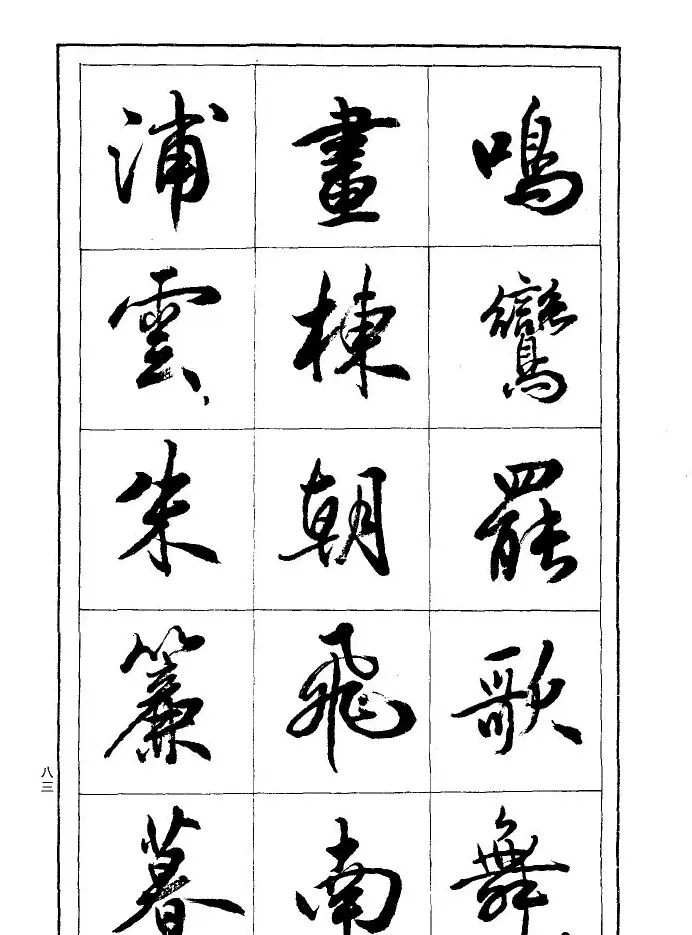 鳴鸞罷歌舞
畫棟朝飛南
浦雲朱簾暮
八三